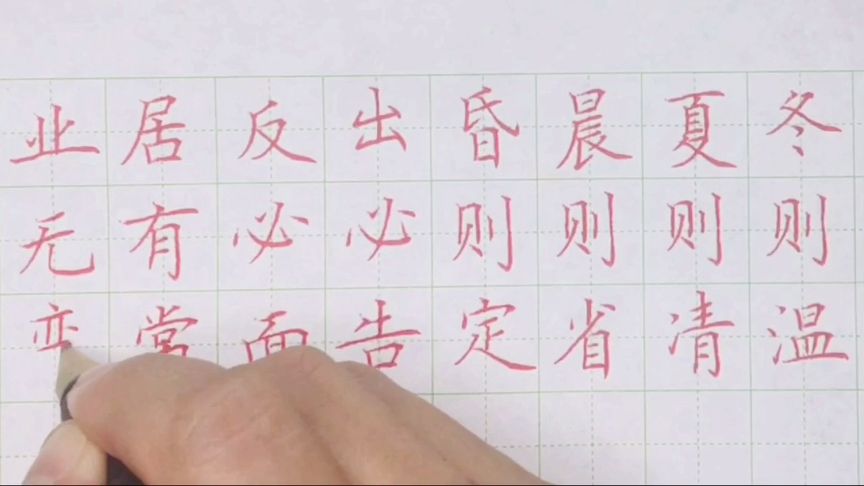 冬则温
夏则凊
晨则省
昏则定
出必告
反必面
居有常
业无变